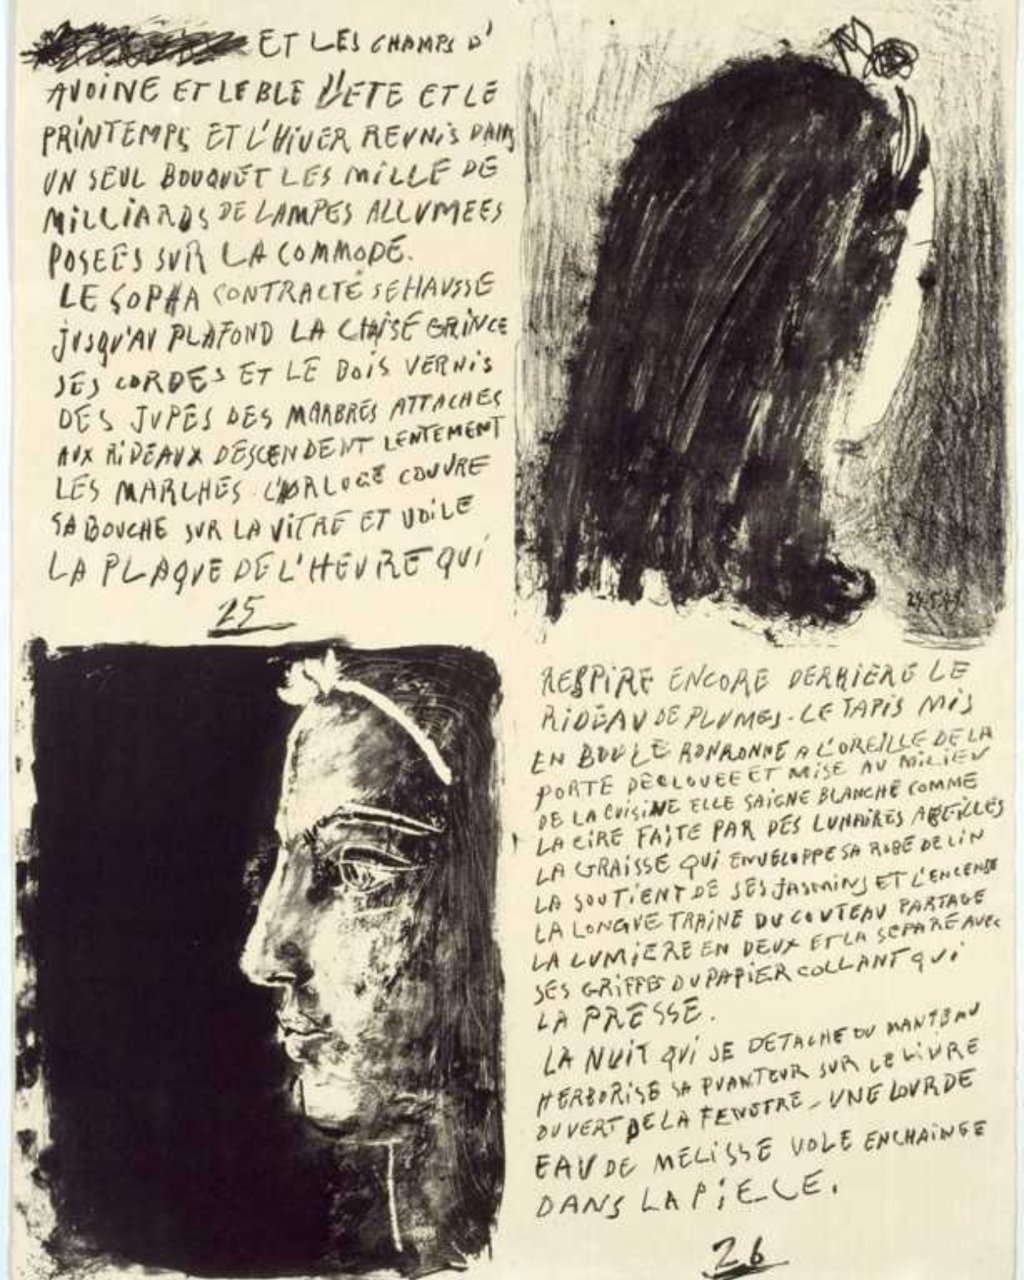 ET LES CHAMPS D'
AVOINE ET LE BLE L'ETE ET LE
PRINTEMPS ET L'HIVER REUNIS DANS
UN SEUL BOUQUET LES MILLE DE
MILLIARDS DE LAMPES ALLUMEES
POSEES SUR LA COMMODE.
LE SOPHA CONTRACTÉ SE HAUSSE
JUSQU'AU PLAFOND LA CHAISE GRINCE
SES CORDES ET LE BOIS VERNIS
DES JUPES DES MARBRES ATTACHES
AUX RIDEAUX DESCENDENT LENTEMENT
LES MARCHES. L'HORLOGE COUVRE
SA BOUCHE SUR LA VITRE ET VOILE
LA PLAQUE DE L'HEURE QUI
25
RESPIRE ENCORE DERRIERE LE
RIDEAU DE PLUMES - LE TAPIS MIS
EN BOULE RONRONNE A L'OREILLE DE LA
PORTE DECLOUEE ET MISE AU MILIEU
DE LA CUISINE ELLE SAIGNE BLANCHE COMME
LA CIRE FAITE PAR DES LUNAIRES ABEILLES
LA GRAISSE QUI ENVELOPPE SA ROBE DE LIN
LA SOUTIENT DE SES JASMINS ET L'ENCENSE
LA LONGUE TRAINE DU COUTEAU PARTAGE
LA LUMIERE EN DEUX ET LA SEPARE AVEC
SES GRIFFES DU PAPIER COLLANT QUI
LA PRESSE.
LA NUIT QUI SE DETACHE DU MANTEAU
HERBORISE SA PUANTEUR SUR LE LIVRE
OUVERT DE LA FENETRE - UNE LOURDE
EAU DE MELISSE VOLE ENCHAINEE
DANS LA PIECE.
26